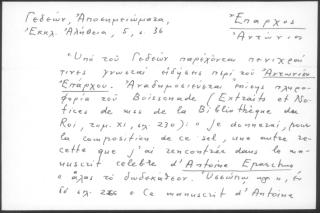 Γεδεών, Ἀποσημειώματα,
Ἐκκλ. Ἀλήθεια, 5, σ. 36
Ἔπαρχος
Ἀντώνιος
"Ὑπὸ τοῦ Γεδεὼν παρέχονται πενιχραί
τινες γνωσταὶ εἰδήσεις περὶ τοῦ Ἀντωνίου
Ἐπάρχου. Ἀναδημοσιεύεται ἐπίσης πληρο-
φορία τοῦ Boissonade (Extraits et No-
tices de mss de la Bibliothèque du
Roi, tom. XI, σελ. 230): " je donnerai, pour
la composition de ce sel, une autre re-
cette que j'ai rencontrée dans le ma-
nuscrit célèbre d'Antoine Eparchus
" ἅλας τὸ δωδεκάθεον.
σελ. " Ce manuscrit d'Antoine